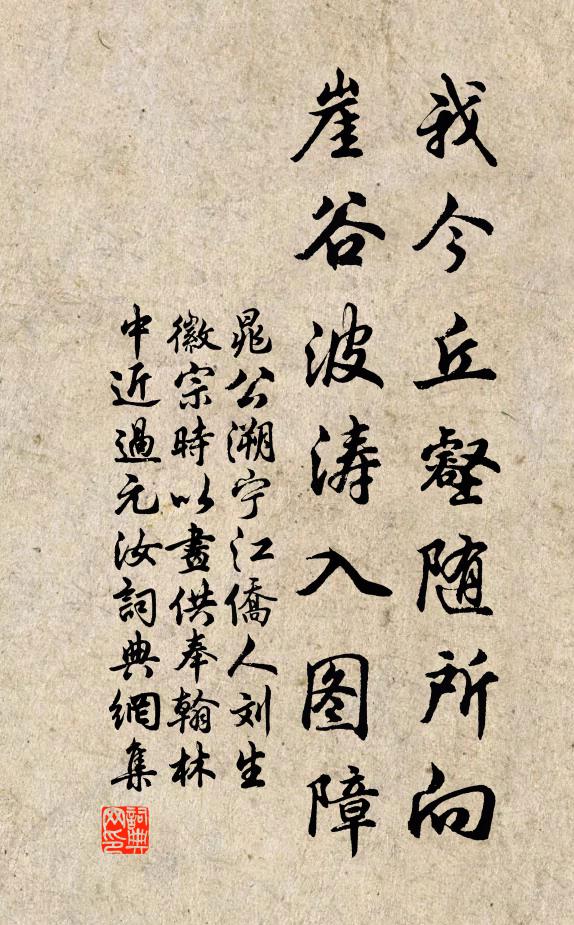 我今丘壑随所向
崖谷波涛入图障
晁公溯宁江侨人刘生
徽宗時以畫供奉翰林
中近過元汝詞典網集
詞典网印